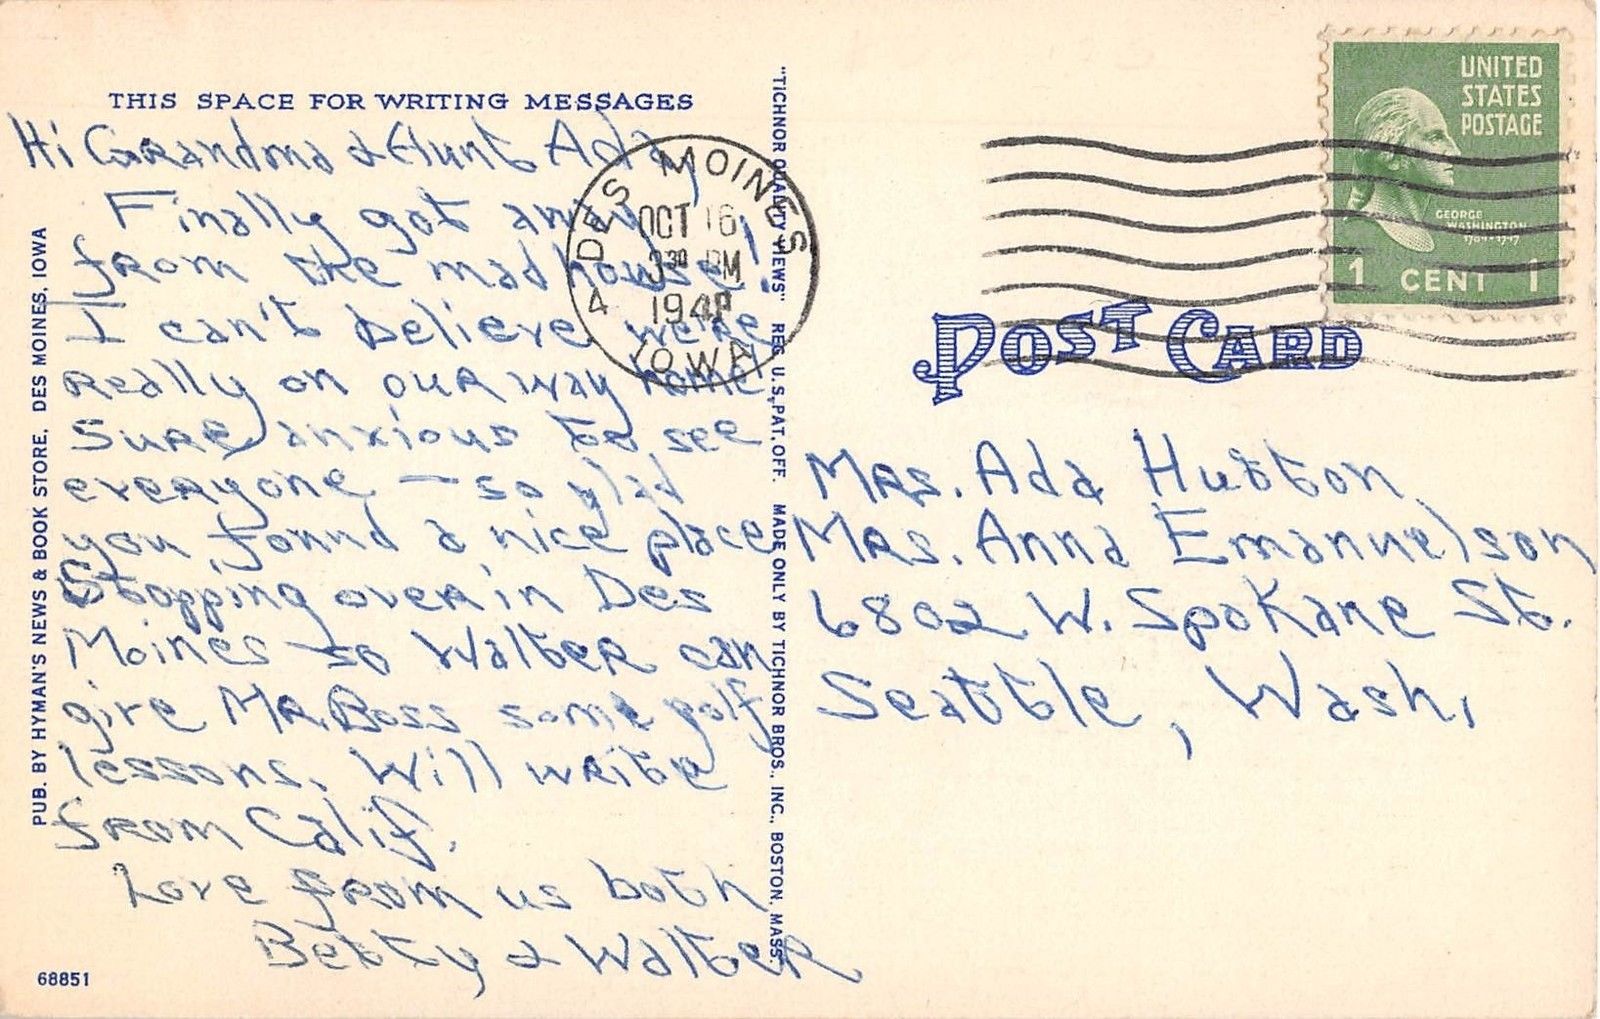 THIS SPACE FOR WRITING MESSAGES
Hi Grandma & Aunt Ada,
Finally got away
from the mad house!
I can't believe we're
really on our way home
Sure anxious to see
everyone — so glad
you found a nice place
Stopping over in Des
Moines so Walter can
give Mr. Boss some golf
lessons. Will write
from Calif.
Love from us both
Betty & Walter
68851
PUB. BY HYMAN'S NEWS & BOOK STORE, DES MOINES, IOWA
"TICHNOR QUALITY VIEWS" REG. U.S. PAT. OFF. MADE ONLY BY TICHNOR BROS., INC., BOSTON, MASS.
DES MOINES
OCT 16
3 30 PM
4
IOWA
UNITED
STATES
POSTAGE
GEORGE
WASHINGTON
1 CENT 1
POST CARD
Mrs. Ada Hutton
Mrs. Anna Emanuelson
6802 W. Spokane St.
Seattle, Wash.